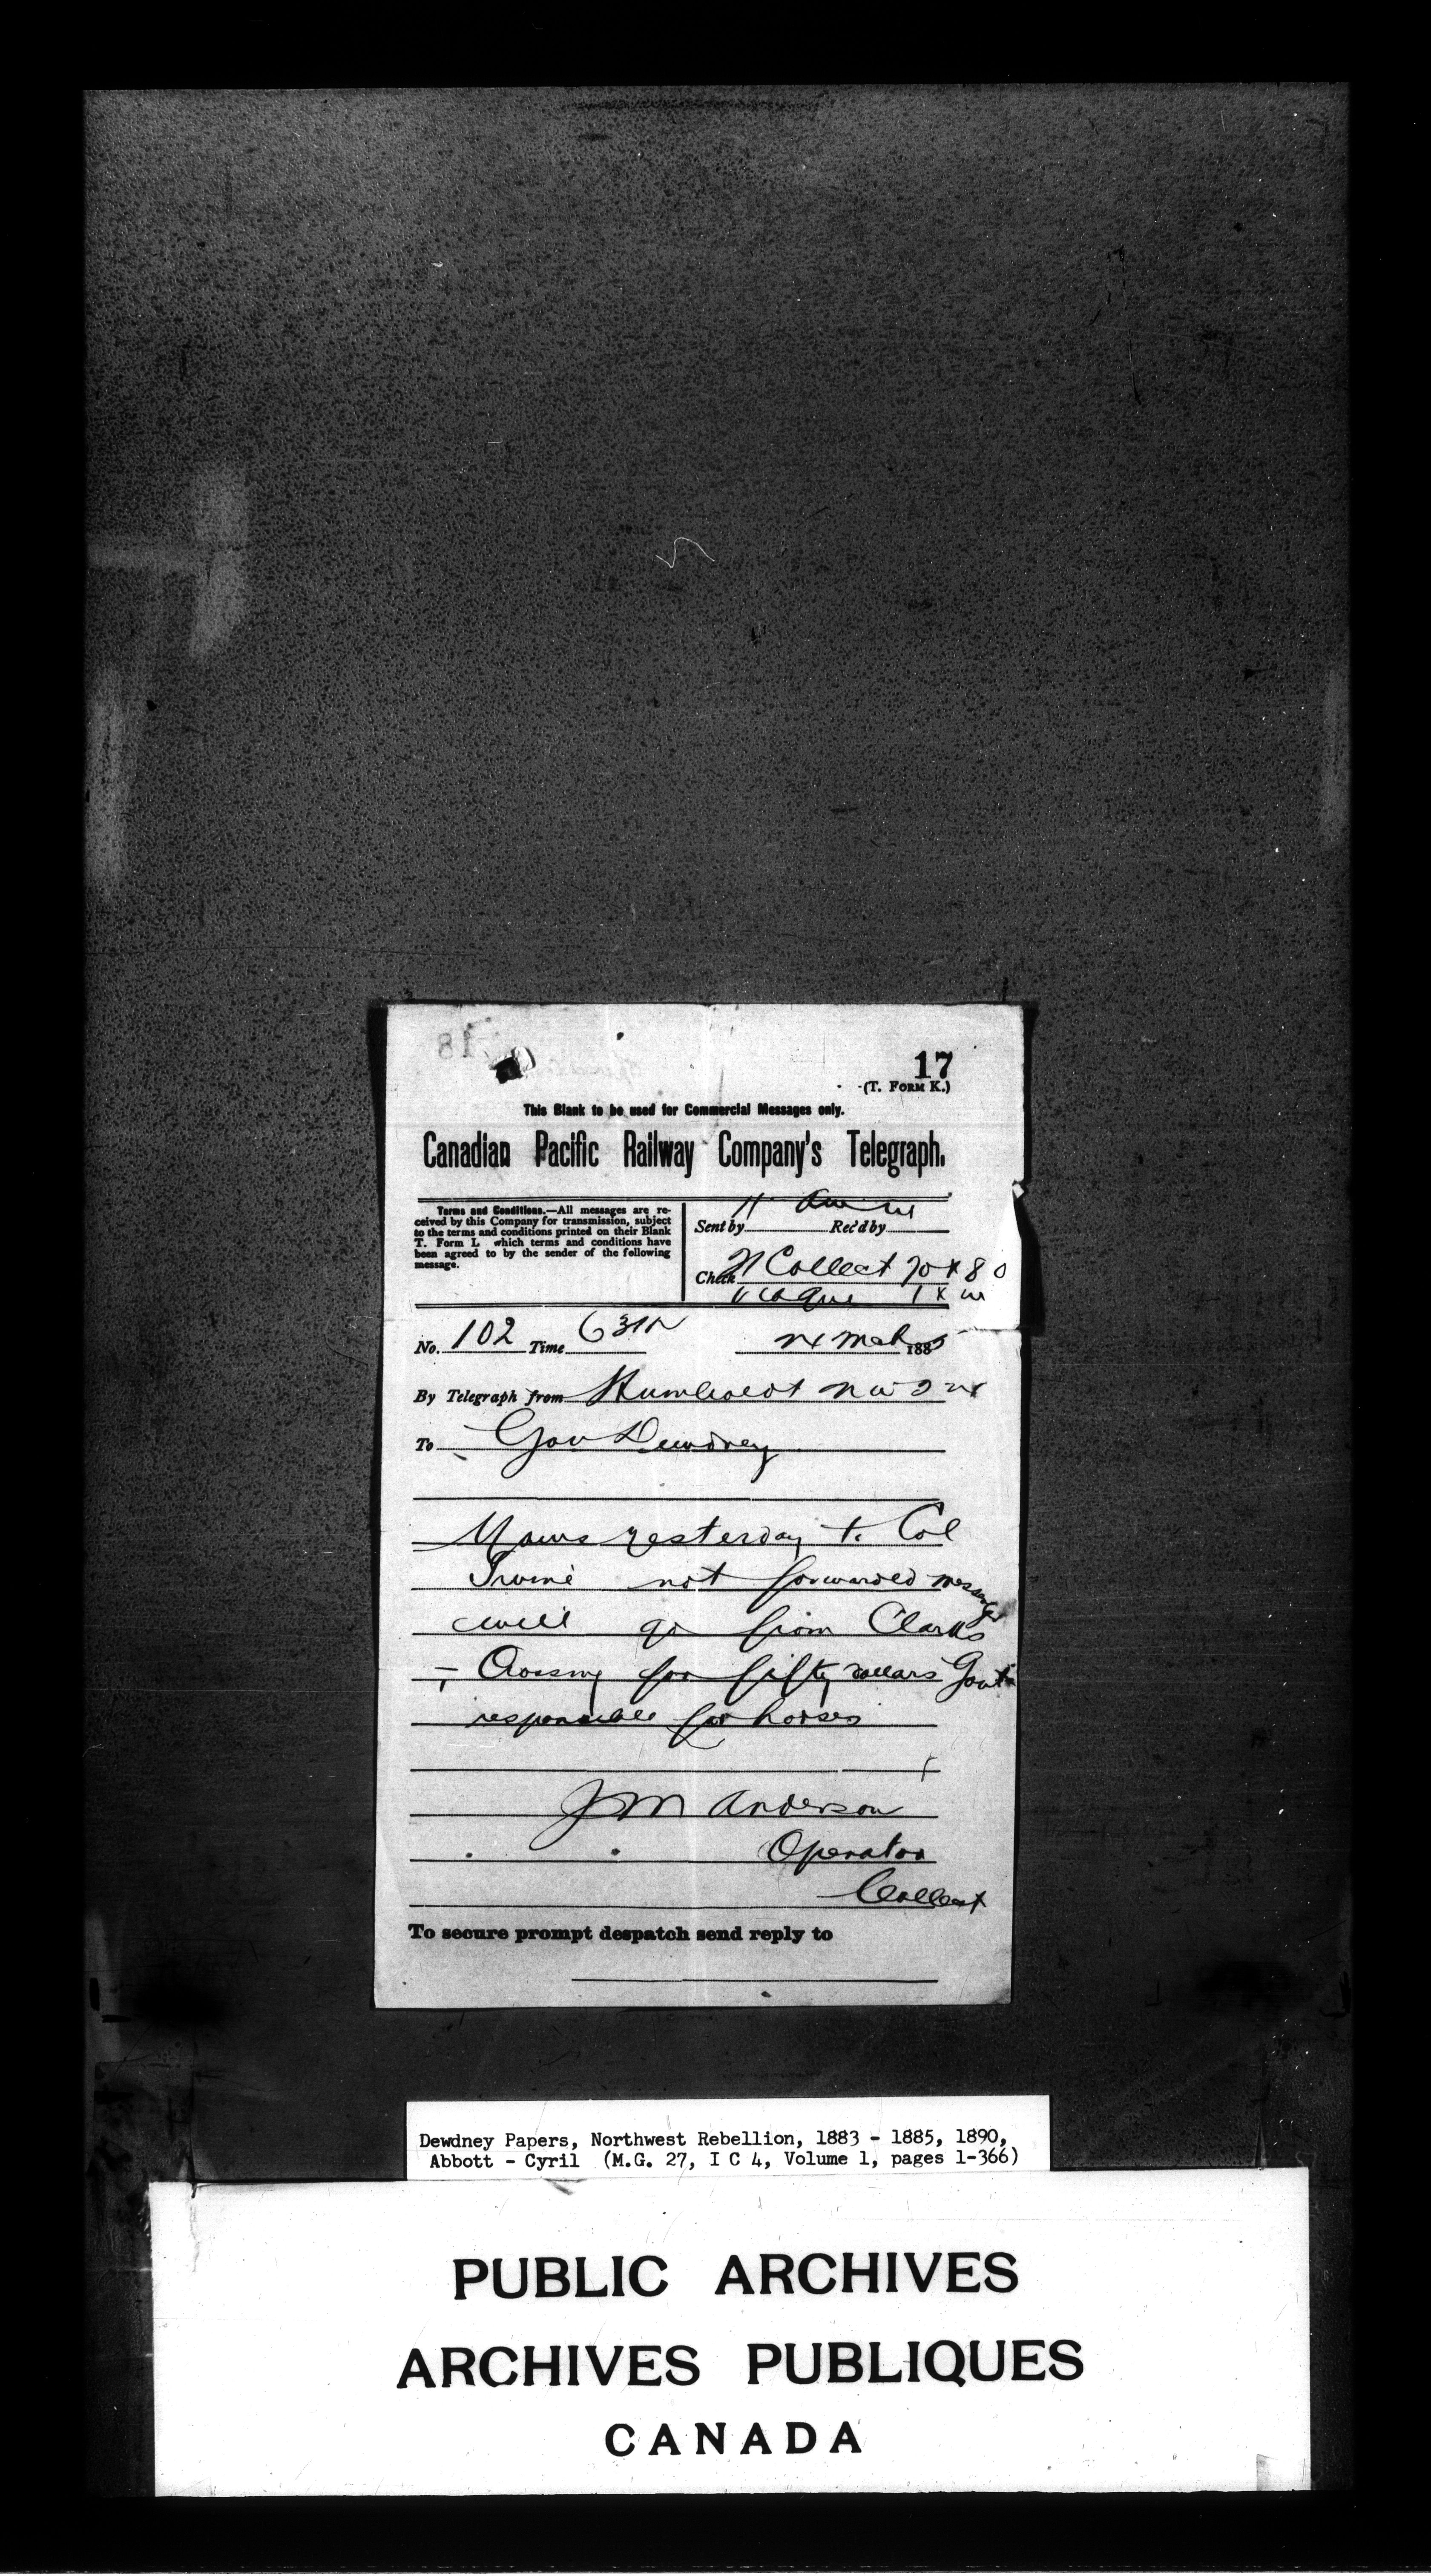 17
(T. FORM K.)
This Blank to be used for Commercial Messages only.
Canadian Pacific Railway Company's Telegraph.
Terms and Conditions.—All messages are re-
ceived by this Company for transmission, subject
to the terms and conditions printed on their Blank
T. Form I. which terms and conditions have
been agreed to by the sender of the following
message.
Sent by Rec'd by
Check Collect 70 x 80
No. 102 Time 631
24 Mch 1885
By Telegraph from Humboldt NW
To Gov Dewdney
Yours yesterday to Col
Irvine not forwarded messenger
will go from Clarks
Crossing for fifty dollars Govt
responsible for horses
J M Anderson
Operator
Collect
To secure prompt despatch send reply to
Dewdney Papers, Northwest Rebellion, 1883 - 1885, 1890,
Abbott - Cyril (M.G. 27, I C 4, Volume 1, pages 1-366)
PUBLIC ARCHIVES
ARCHIVES PUBLIQUES
CANADA